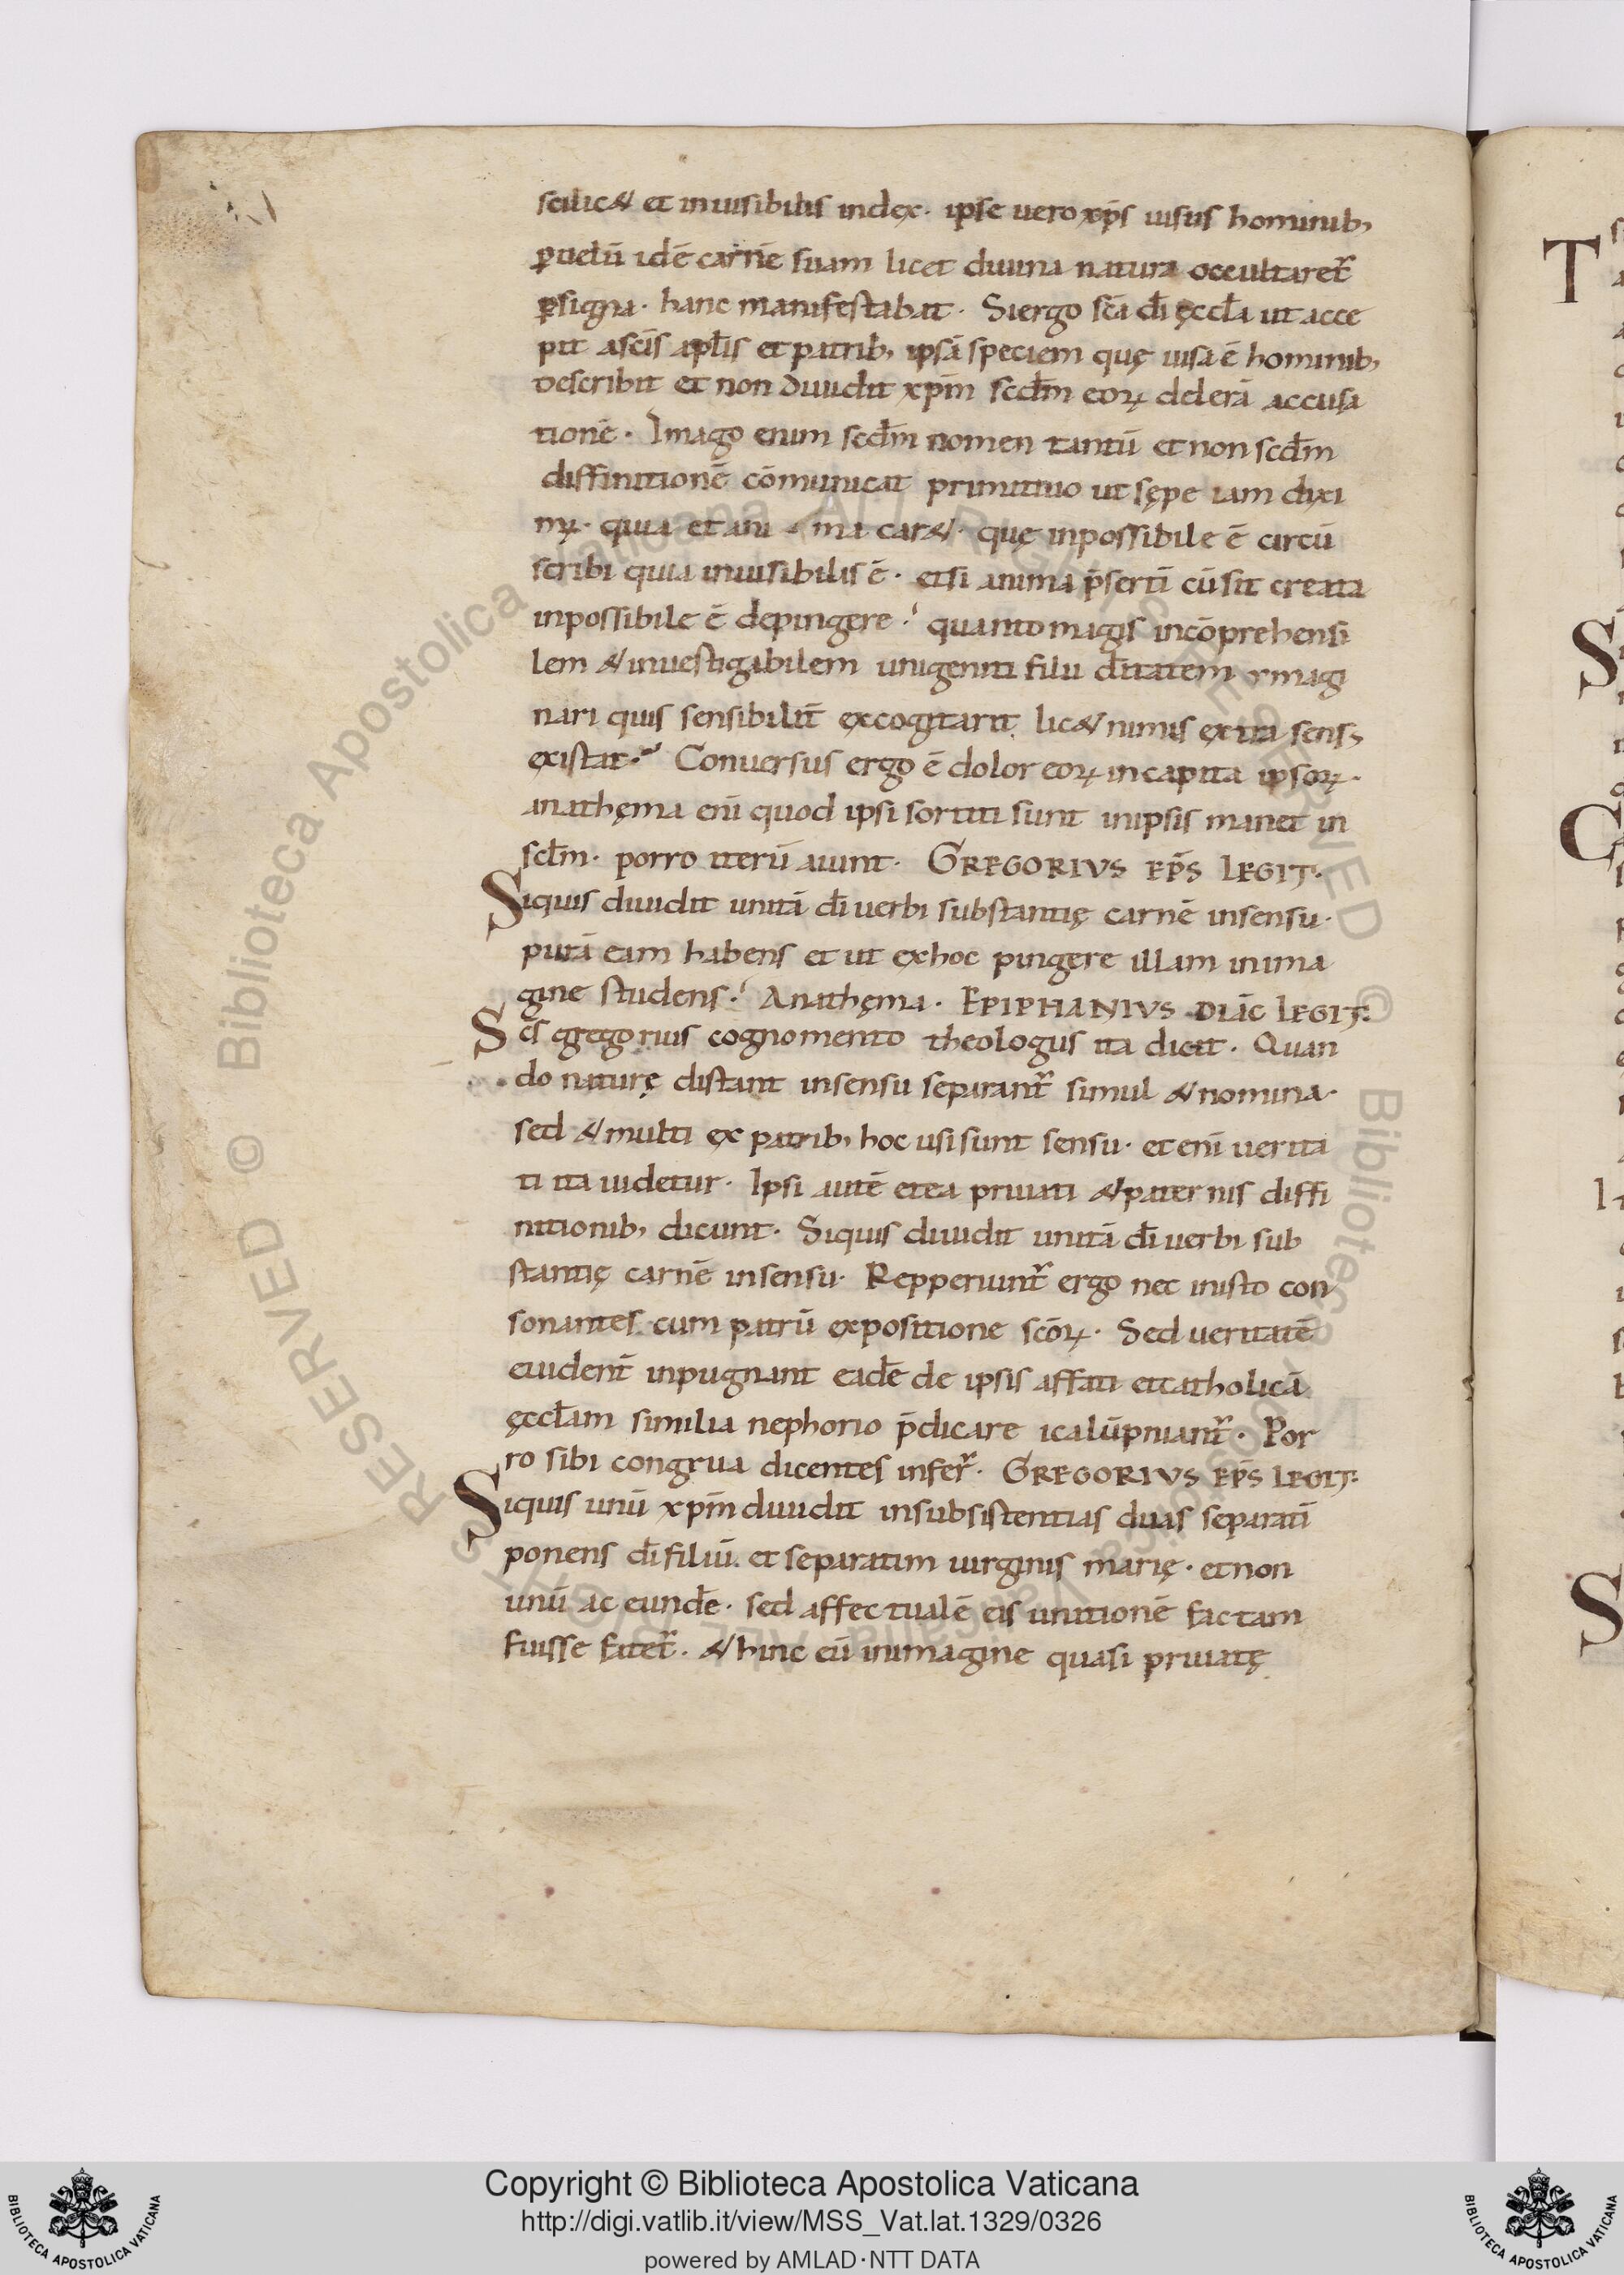 scilic& et inuisibilis index. ipse uero xp̄s uisus hominib;
ꝑuelū idē carnē suam licet diuina natura occultaret᷑
ꝑsigna. hanc manifestabat. Siergo sc̄a dī ęccła ut acce
pit ascīs apłis et patrib; ipsā speciem quę uisa ē hominib;
describit et non diuidit xp̄m scdm̄ eoꝝ delerā accusa
tionē. Imago enim scdm̄ nomen tantū et non scdm̄
diffinitionē cōmunicat primitiuo ut sępe iam dixi
mꝰ. quia et ani ma car&. quę inpossibile ē circū
scribi quia inuisibilis ē. etsi anima p̄sertī cū sit creata
inpossibile ē depingere. quanto magis incōprehensi
lem & inuestigabilem unigeniti filii dītatem ymagi
nari quis sensibilit̄ excogitarit. lic& nimis extra sens;
existat. Conuersus ergo ē dolor eoꝝ in capita ipsoꝝ.
anathęma enī quod ipsi sortiti sunt inipsis manet in
scłm. porro iterū aiunt. GREGORIVS EP̄S LEGIT.
Siquis diuidit unitā dī uerbi substantię carnē insensu.
purā eam habens et ut exhoc pingere illam inima
gine studens. Anathęma. EPIPHANIVS DIĀC LEGIT.
Scs̄ gregorius cognomento theologus ita dicit. Quan
do naturę distant insensu separant᷑ simul & nomina.
sed & multi ex patrib; hoc usi sunt sensu. et enī uerita
ti ita uidetur. Ipsi autē etea priuati & paternis diffi
nitionib; dicunt. Siquis diuidit unitā dī uerbi sub
stantię carnē insensu. Repperiunt᷑ ergo nec inisto con
sonantes cum patrū expositione scōꝝ. Sed ueritatē
euident̄ inpugnant eadē de ipsis affati etcatholicā
ęccłam similia nephorio p̄dicare icalūpniant᷑. Por
ro sibi congrua dicentes infer᷑. GREGORIVS EP̄S LEGIT.
Siquis unū xp̄m diuidit insubsistentias duas separatī
ponens dī filiū. et separatim uirginis marię. et non
unū ac eundē. sed affectualē eis unitionē factam
fuisse fatet᷑. & hinc eū inimagine quasi priuatę
T
S
C
S
Copyright © Biblioteca Apostolica Vaticana
http://digi.vatlib.it/view/MSS_Vat.lat.1329/0326
powered by AMLAD·NTT DATA
BIBLIOTECA APOSTOLICA VATICANA
BIBLIOTECA APOSTOLICA VATICANA